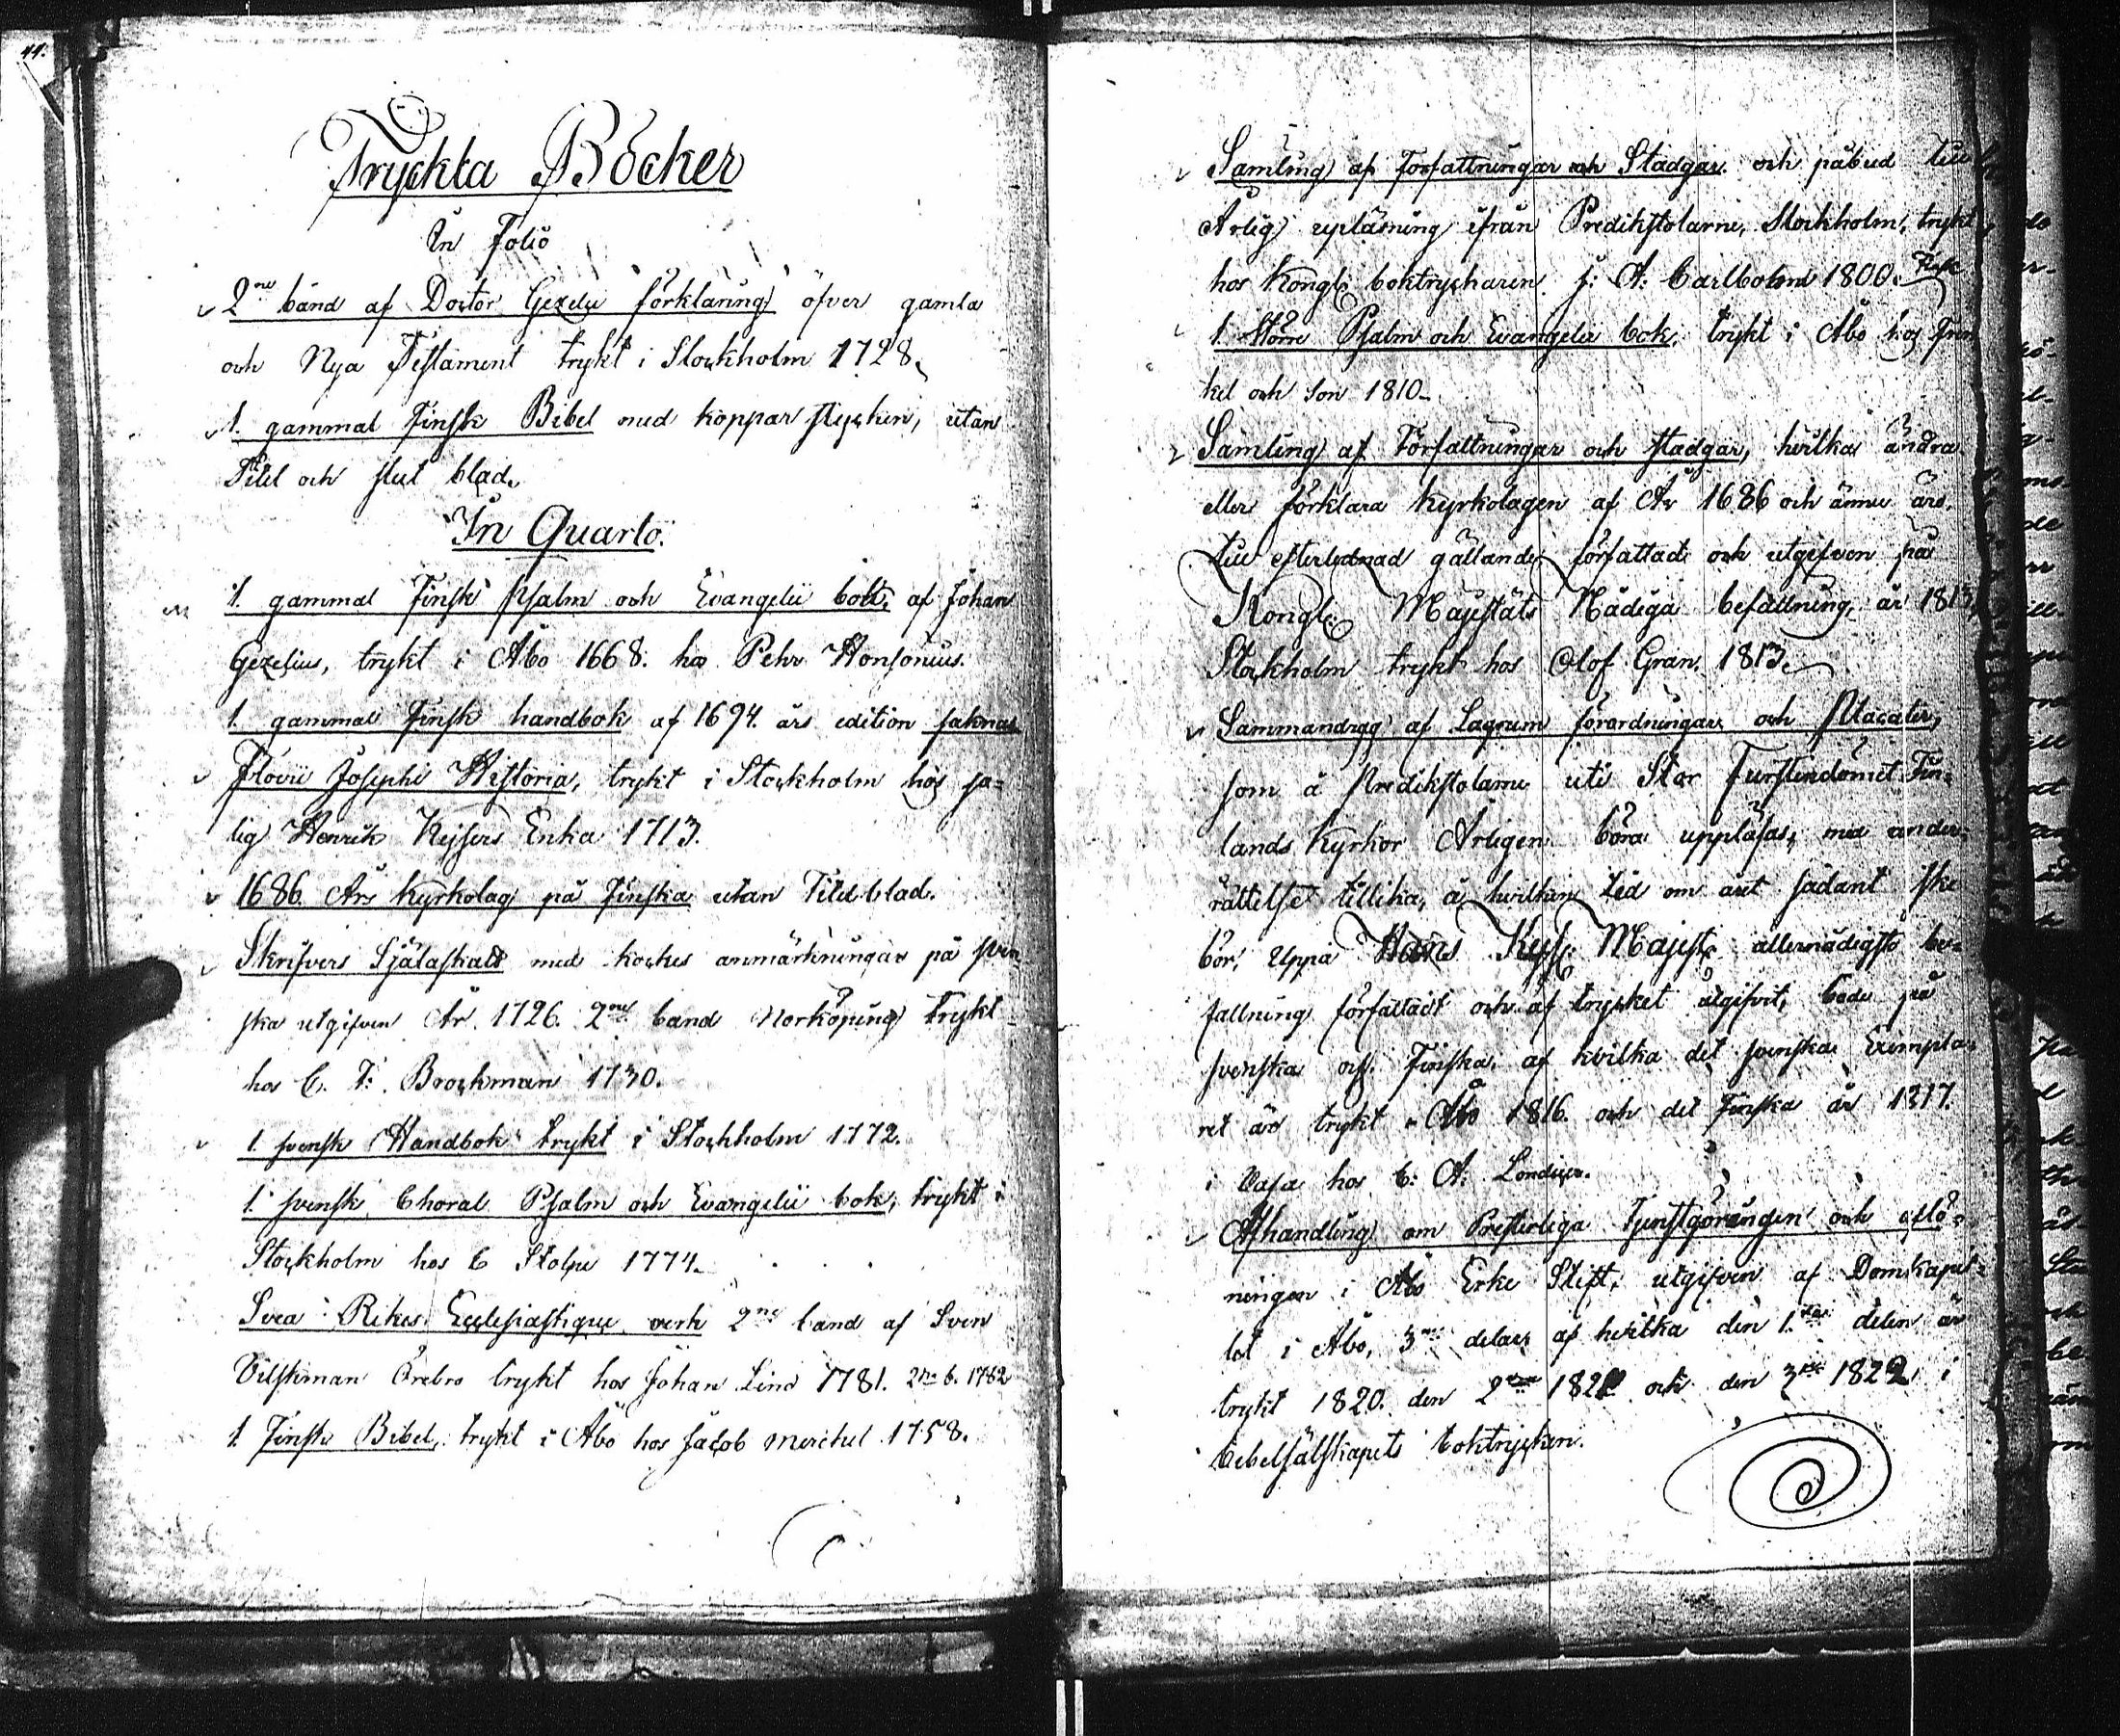 44.
Tryckta Böcker
In Folio
2ne band af Doctor Gezelii förklaring öfver gamla
och Nya Testament trykt i Stockholm 1728.
1. gammal Finsk Bibel med koppar stycken, utan
Titel och slut blad.
In Quarto.
1. gammal Finsk Psalm och Evangelii bok, af Johan
Gezelius, trykt i Åbo 1668. hos Pehr Hansonius.
1. gammal Finsk handbok af 1694. års edition saknas
Flavii Josephi Historia, trykt i Stockholm hos sa-
lig Henrik Keysers Enka 1713.
1686. Års Kyrkolag på Finska utan Titelblad.
Skrifvers Själaskatt med kockes anmärkningar på sven-
ska utgifven År 1726. 2ne band Norköping trykt
hos C. F: Brockman 1730.
1. svensk Handbok trykt i Stockholm 1772.
1. svensk Choral Psalm och Evangelii bok, trykt i
Stockholm hos C Stolpe 1774.
Svea Rikes Ecclesiastique verk 2ne band af Sven
Vilskman Örebro trykt hos Johan Lind 1781. 2ne b. 1782
1. Finsk Bibel, trykt i Åbo hos Jacob merchel 1758.
Samling af Författningar och Stadgar och påbud till
Årlig upläsning ifrån Predikstolarne, Stockholm, trykt
hos Kongl: boktryckaren J: A: Carlbohm 1800.
1. Större Psalm och Evangelii bok, trykt i Åbo hos Fren
kel och Son 1810.
Samling af Författningar och stadgar, hvilka ändra
eller förklara Kyrkolagen af År 1686 och ännu äro
till efterlednad gällande, författad och utgifven på
Kongl: Majestäts Nådiga befallning, år 1813,
Stockholm trykt hos Olof Gran. 1813.
Sammandrag af Lagrum förordningar och Placater,
som å Predikstolarne uti Stor Furstendömet Fin-
lands Kyrkor Årligen böra uppläsas, med under-
rättelse tillika, å hvilken tid om året sådant ske
bör, Uppå Hans Kejs: Majest: allernådigste be-
fallning författadt och af trycket utgifvit, både på
svenska och Finska, af hvilka det svenska Exempla-
ret är trykt i Åbo 1816. och det Finska år 1817.
i Vasa hos C: A: Londicer.
Afhandling om Presterliga Tjenstgöringen och aflö-
ningen i Åbo Erke Stift, utgifven af Domkapit-
let i Åbo, 3ne delar af hvilka den 1.sta delen är
trykt 1820. den 2dra 1821 och den 3die 1822, i
bibelsälskapets boktryckeri.